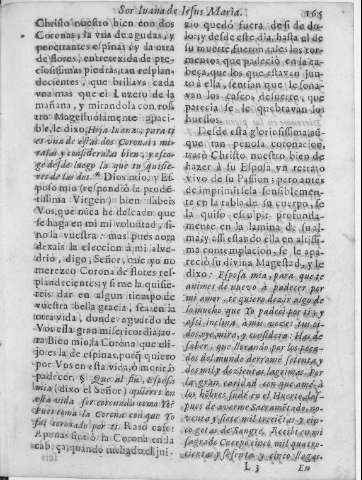 Sor Iuana de Iesus Maria. 165
Christo nuestro bien con dos
Coronas; la vna de agudas, y
penetrantes espinas; y la otra
de flores, entretexida de pre-
ciosissimas piedras, tan resplan-
decientes, que brillava cada
vna mas que el Luzero de la
mañana, y mirandola con ros-
tro Magestuosamente apaci-
ble, le dixo; Hija Iuana, para ti
es vna de estas dos Coronas; mi-
ralas y consideralas bien, y esco-
ge desde luego la que tu quisie-
res de las dos. Dios mio, y Es-
poso mio (respondiò la prudẽ-
tissima Virgen) bien sabeis
Vos, que nũca he deseado que
se haga en mi mi voluntad, si-
no la vuestra; mas pues aora
dexais la eleccion à mi alve-
drio, digo, Señor, que yo no
merezco Corona de flores res-
plandecientes; y si me la quisie-
reis dar en algun tiempo de
vuestra bella gracia, sea en la
otra vida, donde aguardo de
Vos essa gran misericordia; ao-
ra Bien mio, la Corona que eli-
jo es la de espinas, pues quiero
por Vos en esta vida, ò morir, ò
padecer. Que assi, Esposa
mia (dixo el Señor) quieres en
esta vida ser coronada como Yo?
Pues toma la Corona con que Yo
fui coronado por ti. Raro caso!
Apenas sintiò la Corona en la
cabeça, quando
zio quedò fuera de si de do-
lor; y desde este dia, hasta el de
su muerte fueron tales los tor-
mentos que padeciò en la ca-
beça, que los que estavan jun-
to à ella, sentian que le sona-
van los cascos de suerte, que
parecia se le quebravan los
huessos.
Desde esta gloriosissima, aũ-
que tan penosa coronacion,
tratò Christo nuestro bien de
hazer à su Esposa vn retrato
vivo de su Passion; pero antes
de imprimirsela sensiblemen-
te en la tabla de su cuerpo, se
la quiso esculpir profunda-
mente en la lamina de su al-
ma; y assi estando ella en altissi-
ma contemplacion, se le apa-
reciò su divina Magestad, y le
dixo: Esposa mia, para que te
animes de nuevo à padecer por
mi amor, te quiero dezir algo de
lo mucho que Yo padecì por ti; y
assi, inclina à mis vozes tus oi-
dos, oye, mira, y considera: Has de
saber, que llorando por los peca-
dos del mundo derramè setenta, y
dos mil y docientas lagrimas. Por
la gran caridad con que amè à
los hõbres, sudè en el Huerto, des-
pues de averme Sacramẽtado, no-
venta y siete mil trecientas y cin-
co gotas de Sangre. Recibì en mi
sagrado Cuerpo cinco mil quatro-
cientas y setenta y cinco llagas.
L 3 En